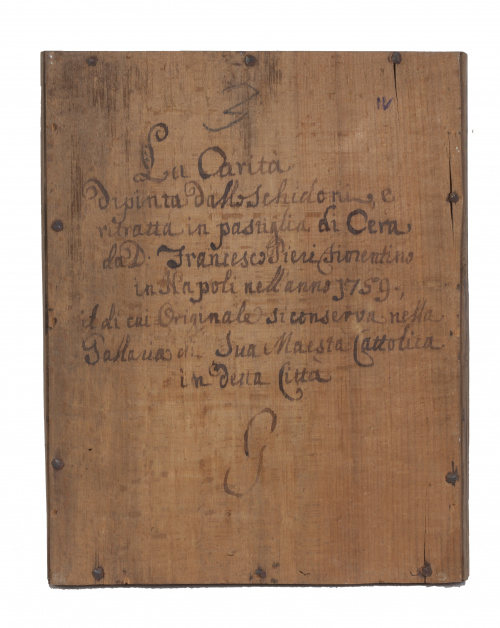 IV
La Carità
dipinta dallo Schidoni, e
ritratta in pastiglia di Cera
da D. Francesco Pieri Fiorentino
in Napoli nell anno 1759.,
il di cui Originale si conserva nella
Gallaria di Sua Maesta Cattolica
in detta Citta
G